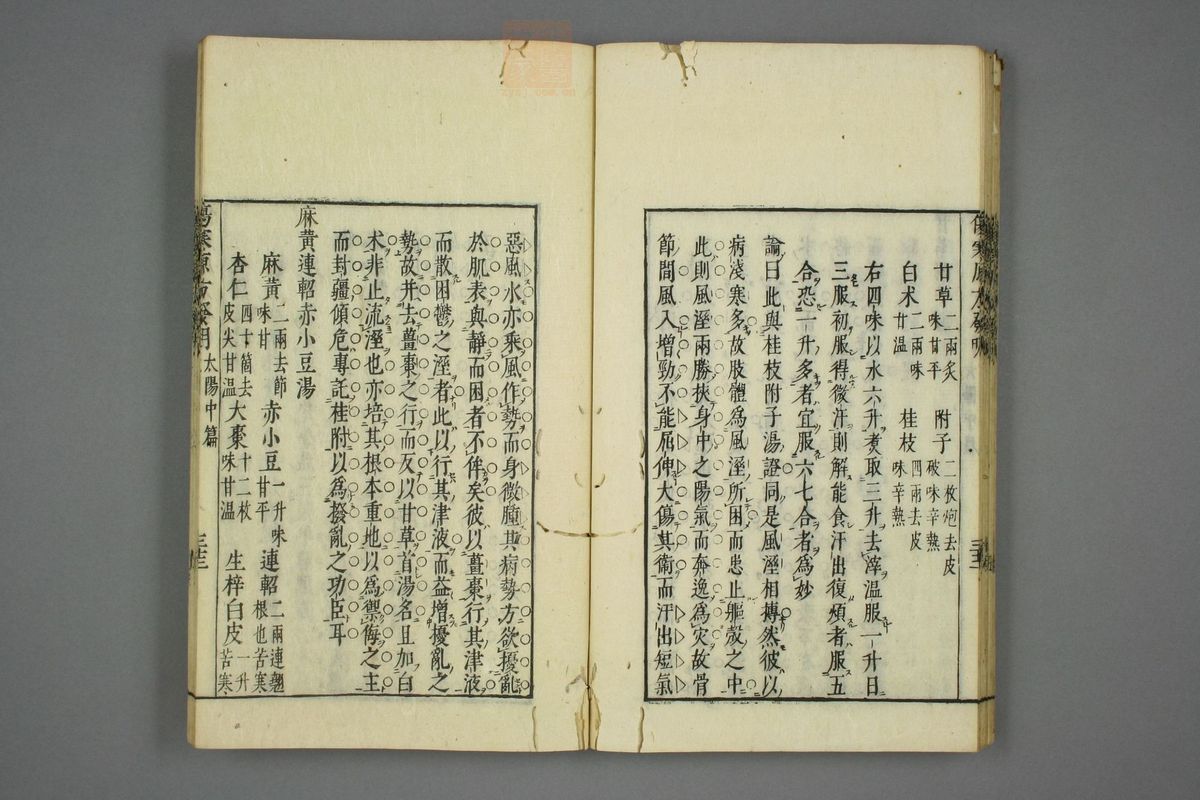 甘草二兩炙味甘平 附子二枚炮去皮破味辛熱
白术二兩味甘溫 桂枝四兩去皮味辛熱
右四味以水六升煮取三升去滓溫服一升日
三服初服得微汗則解能食汗出復煩者服五
合恐一升多者宜服六七合者爲妙
論曰此與桂枝附子湯證同是風溼相搏然彼以
病淺寒多故肢體爲風溼所困而患止軀殼之中
此則風溼兩勝挾身中之陽氣而奔逸爲灾故骨
節間風入增勁不能屈伸大傷其衛而汗出短氣
惡風水亦乘風作勢而身微腫其病勢方欲擾亂
於肌表與靜而困者不侔矣彼以薑棗行其津液
而散困鬱之溼者此以行其津液而益增擾亂之
勢故并去薑棗之行而反以甘草首湯名且加白
术非止流溼也亦培其根本重地以爲禦侮之主
而封疆傾危專託桂附以爲撥亂之功臣耳
麻黃連軺赤小豆湯
麻黃二兩去節味甘 赤小豆一升味甘平 連軺二兩連翹根也苦寒
杏仁四十箇去皮尖甘溫 大棗十二枚味甘溫 生梓白皮一升苦寒
太陽中篇